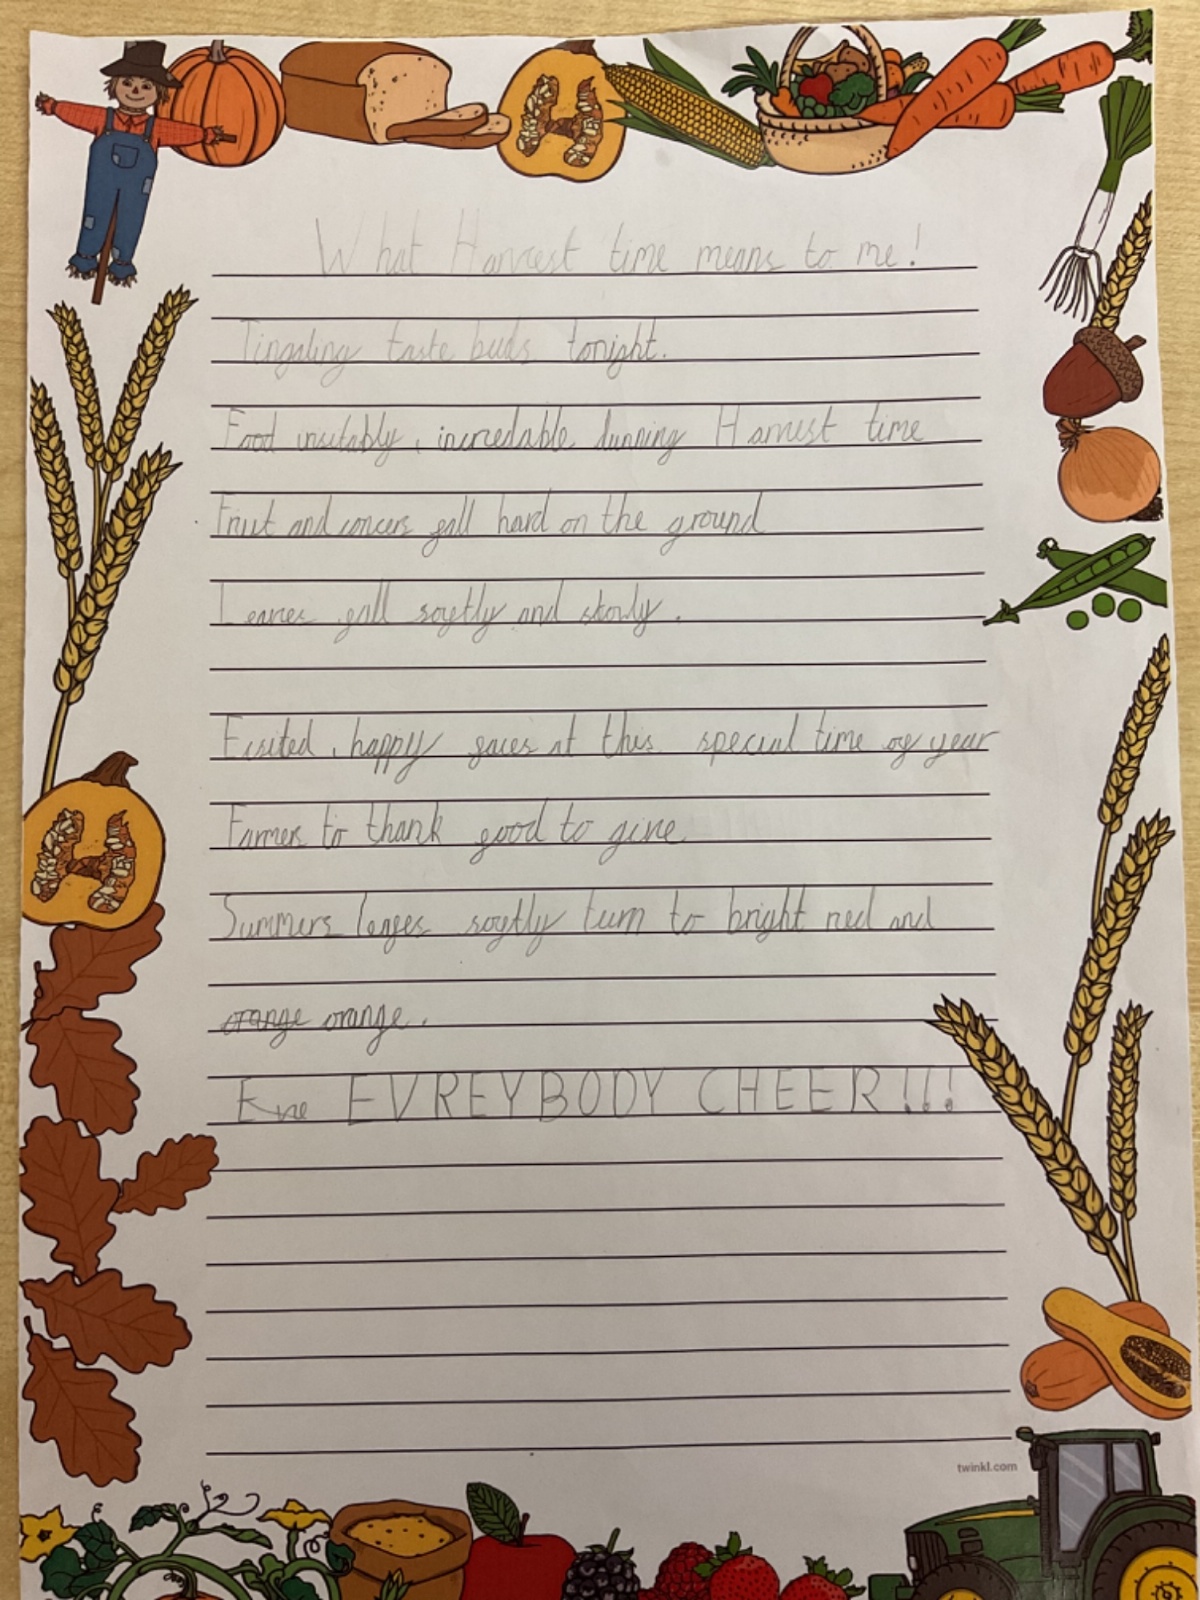 What Harvest time means to me!
Tingaling taste buds tonight.
Food insitably, incredable dunning Harvest time
Fruit and concers fall hard on the ground
Leaves fall softly and slowly.
Exsited, happy faces at this special time of year
Farmer to thank food to give
Summers leafes softly turn to bright red and
orange orange.
Eve EVREYBODY CHEER!!!
twinkl.com